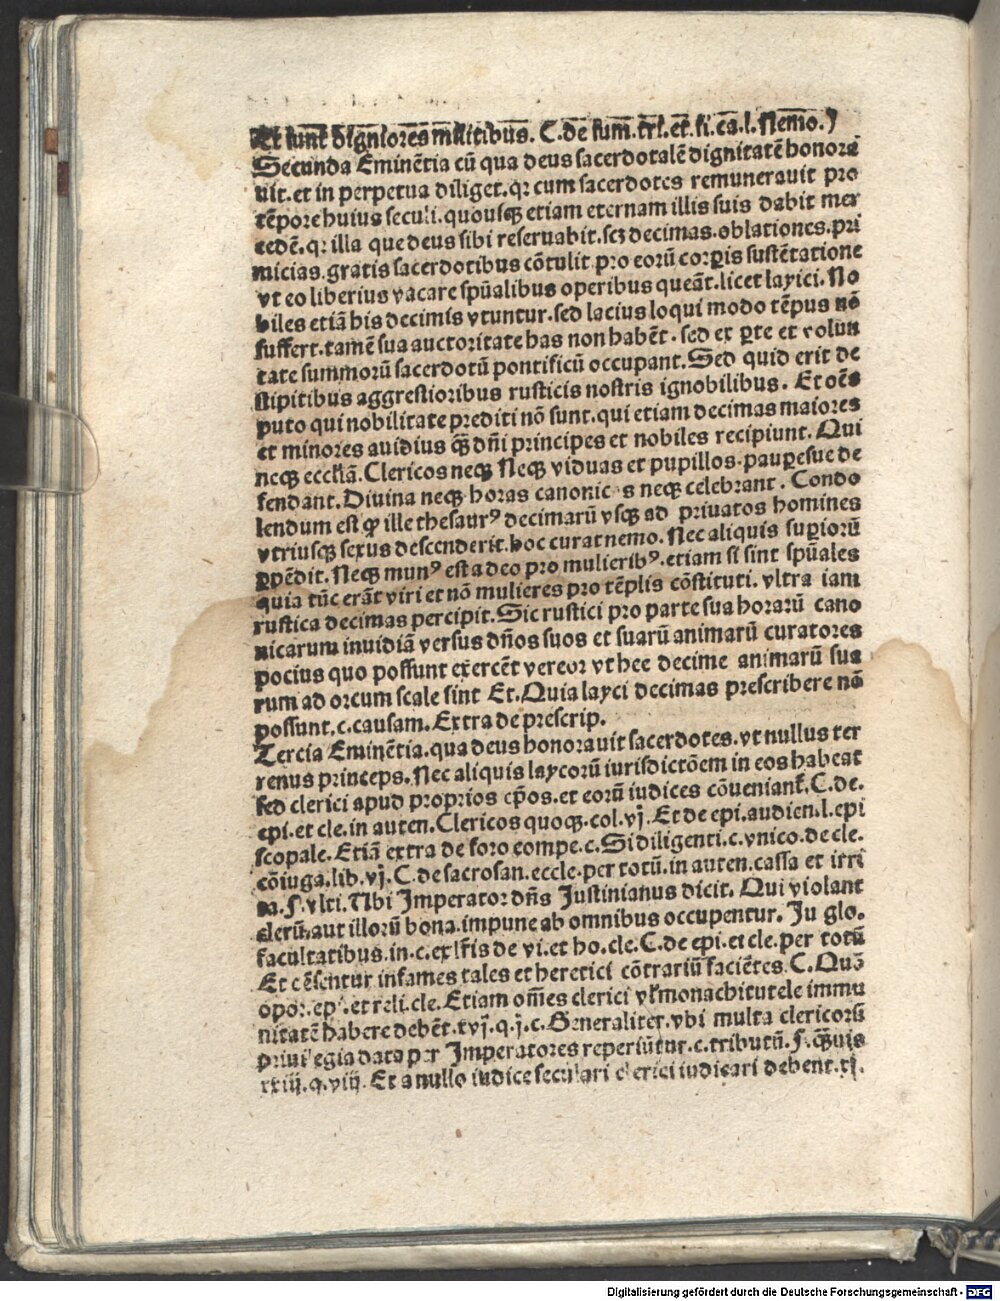 Et sunt digniores militibus. C. de sum. tri. et. fi. ca. l. Nemo.)
Secunda Eminẽtia cũ qua deus sacerdotalẽ dignitatẽ honora
uit. et in perpetua diliget. qꝛ cum sacerdotes remunerauit pro
tẽpore huius seculi. quousqꝫ etiam eternam illis suis dabit mer
cedẽ. qꝛ illa que deus sibi reseruabit. scꝫ decimas. oblationes. pri
micias. gratis sacerdotibus cõtulit pro eorũ corꝑis sustẽtatione
vt eo liberius vacare spũalibus operibus queãt. licet layici. No
biles etiã his decimis vtuntur. sed lacius loqui modo tẽpus nõ
suffert. tamẽ sua auctoritate has non habẽt. sed ex ꝑte et volun
tate summorũ sacerdotũ pontificũ occupant. Sed quid erit de
stipitibus aggrestioribus rusticis nostris ignobilibus. Et oẽs
puto qui nobilitate prediti nõ sunt. qui etiam decimas maiores
et minores auidius qꝫ̃ dñi principes et nobiles recipiunt. Qui
neqꝫ eccłiã. Clericos neqꝫ Neqꝫ viduas et pupillos. pauꝑesue de
fendant. Diuina neqꝫ horas canonicas neqꝫ celebrant. Condo
lendum est ꝙ ille thesaurꝰ decimarũ vsqꝫ ad priuatos homines
vtriusqꝫ sexus descenderit. hoc curat nemo. Nec aliquis suꝑiorũ
ꝑpẽdit. Neqꝫ munꝰ est a deo pro mulieribꝰ. etiam si sint spũales
quia tũc erãt viri et nõ mulieres pro tẽplis cõstituti. vltra iam
rustica decimas percipit. Sic rustici pro parte sua horarũ cano
nicarum inuidiã versus dños suos et suarũ animarũ curatores
pocius quo possunt exercẽt vereor vt hec decime animarũ sua
rum ad orcum scale sint Et. Quia layci decimas prescribere nõ
possunt. c. causam. Extra de prescrip.
Tercia Eminẽtia. qua deus honorauit sacerdotes. vt nullus ter
renus princeps. Nec aliquis laycorũ iurisdictõem in eos habeat
sed clerici apud proprios ep̃os. et eorũ iudices cõueniant̃. C. de.
epi. et cle. in auten. Clericos quoqꝫ. col. vj. Et de epi. audien. l. epi
scopale. Etiã extra de foro compe. c. Si diligenti. c. vnico. de cle.
cõiuga. lib. vj. C. de sacrosan. eccle. per totũ. in auten. cassa et irri
ta. §. vlti. Ubi Imperator dñs Justinianus dicit. Qui violant
clerũ. aut illorũ bona. impune ab omnibus occupentur. Ju glo.
facultatibus. in. c. ex lr̃is de vi. et ho. cle. C. de epi. et cle. per totũ
Et cẽsentur infames tales et heretici cõtrariũ faciẽtes. C. Quõ
opor. epi. et reli. cle. Etiam om̃es clerici vł monachi tutele immu
nitatẽ habere debẽt. xvj. q. j. c. Generaliter. vbi multa clericorũ
priuilegia data per Imperatores reperiũtur. c. tributũ. §. qꝫ̃uis
xxiij. q. viij. Et a nullo iudice seculari clerici iudicari debent. xj.
Digitalisierung gefördert durch die Deutsche Forschungsgemeinschaft - DFG